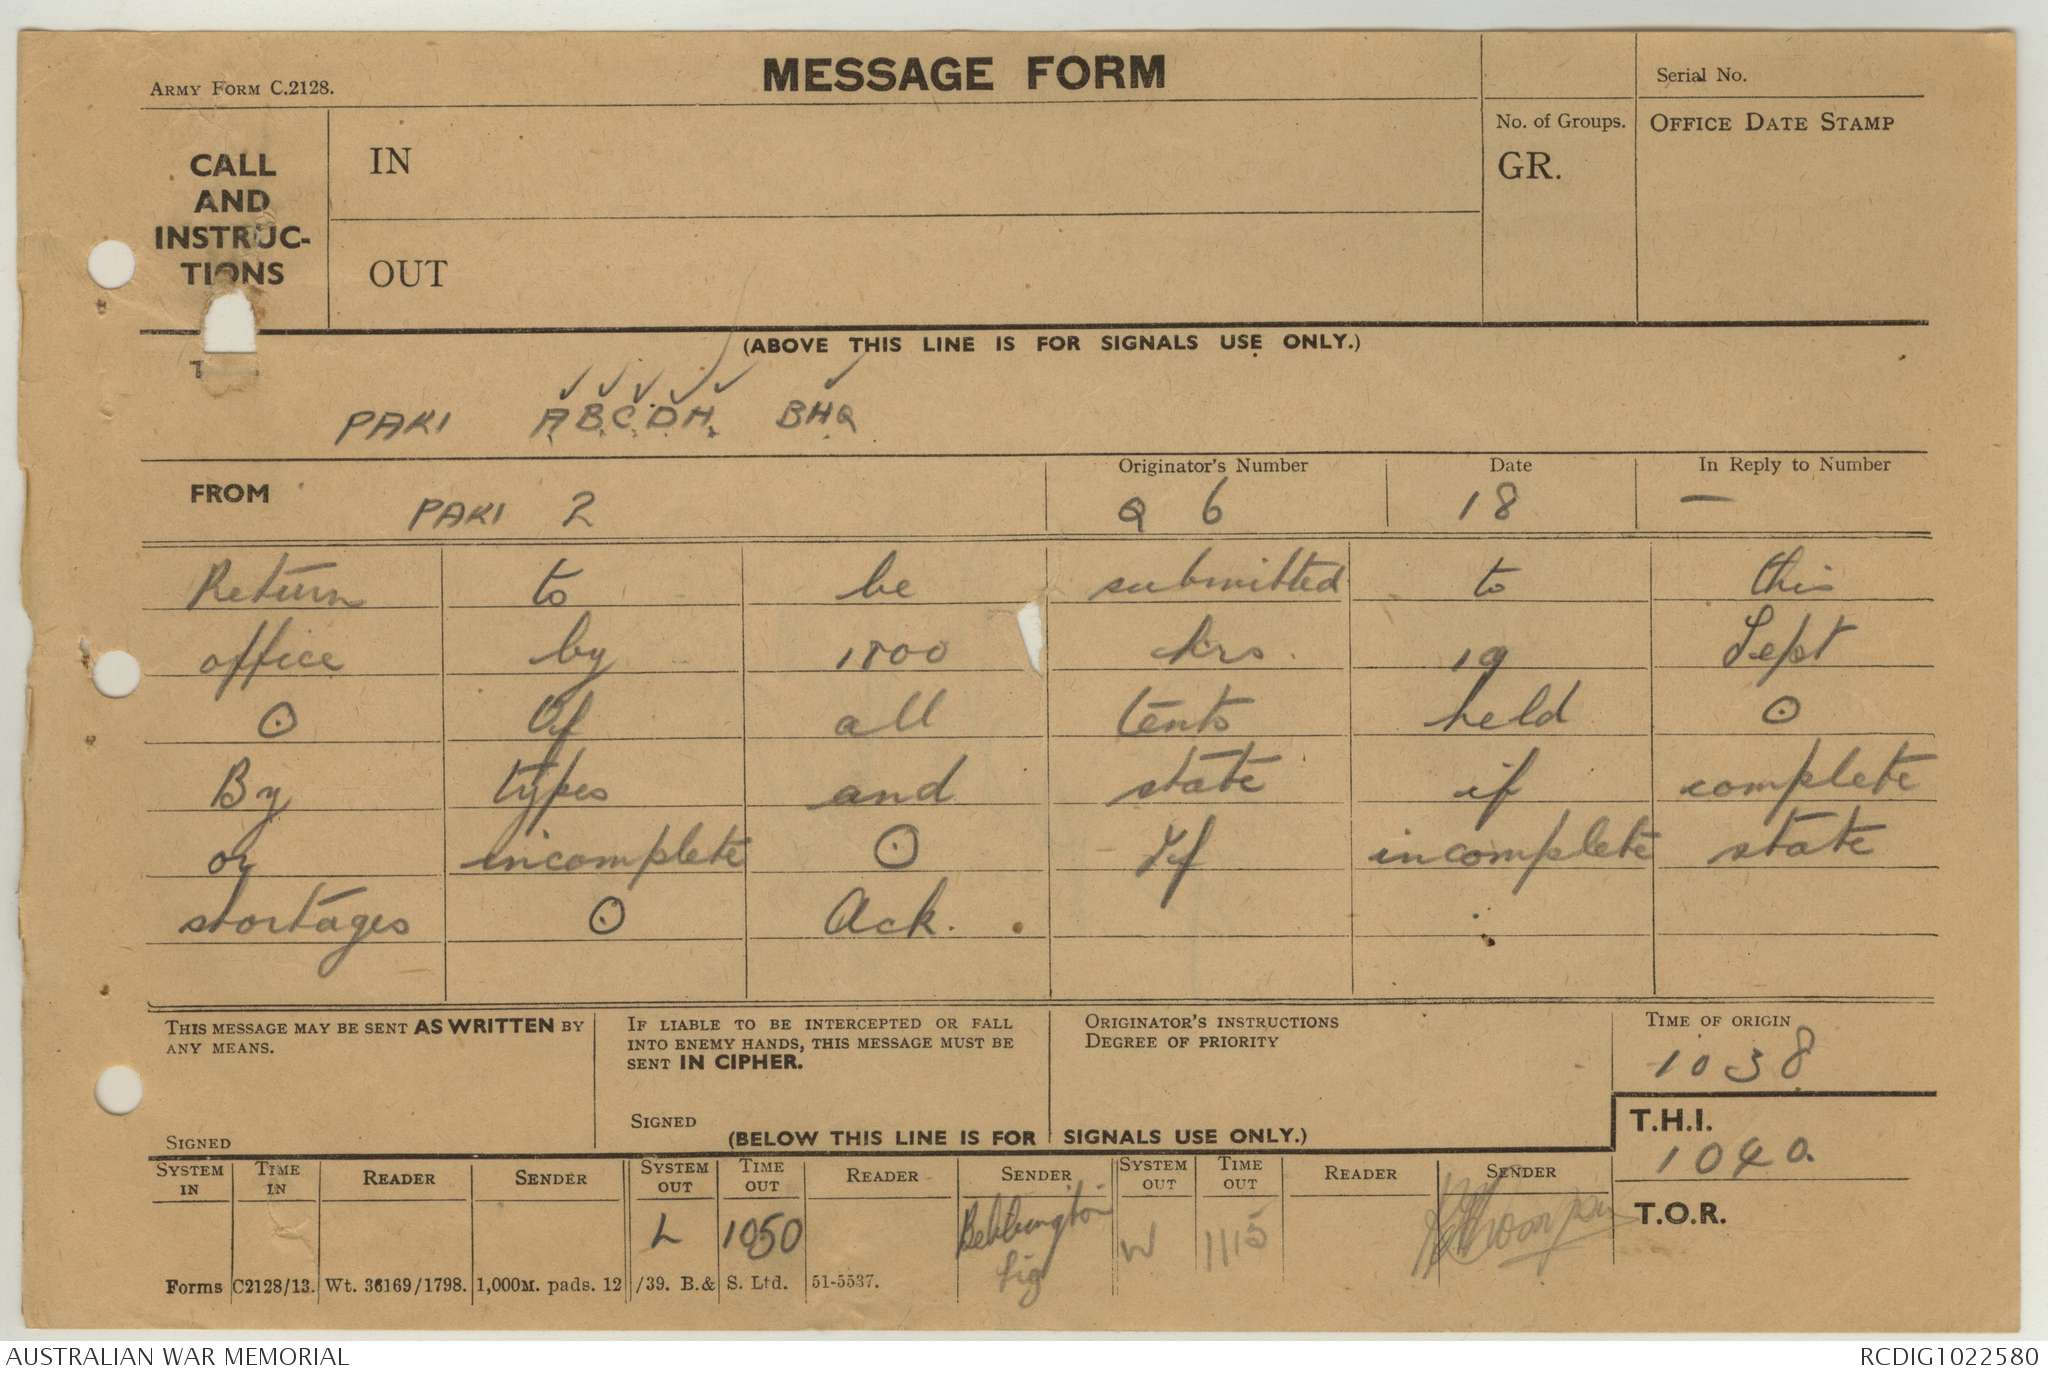 ARMY FORM C.2128.
MESSAGE FORM
Serial No.
CALL AND INSTRUC-TIONS
IN
OUT
No. of Groups.
GR.
OFFICE DATE STAMP
(ABOVE THIS LINE IS FOR SIGNALS USE ONLY.)
PAKI A.B.C.D.H. BHQ
FROM PAKI 2
Originator's Number Q 6
Date 18
In Reply to Number —
Return to be submitted to this
office by 1800 hrs. 19 Sept
⊙ Of all tents held ⊙
By types and state if complete
or incomplete ⊙ If incomplete state
shortages ⊙ Ack.
THIS MESSAGE MAY BE SENT AS WRITTEN BY ANY MEANS.
SIGNED
IF LIABLE TO BE INTERCEPTED OR FALL INTO ENEMY HANDS, THIS MESSAGE MUST BE SENT IN CIPHER.
SIGNED
ORIGINATOR'S INSTRUCTIONS
DEGREE OF PRIORITY
TIME OF ORIGIN
1038
T.H.I.
1040
T.O.R.
(BELOW THIS LINE IS FOR SIGNALS USE ONLY.)
SYSTEM IN TIME IN READER SENDER SYSTEM OUT TIME OUT READER SENDER SYSTEM OUT TIME OUT READER SENDER
L 1050 Sig W 1115
Forms C2128/13. Wt. 36169/1798. 1,000M. pads. 12/39. B.& S. Ltd. 51-5537.
AUSTRALIAN WAR MEMORIAL
RCDIG1022580